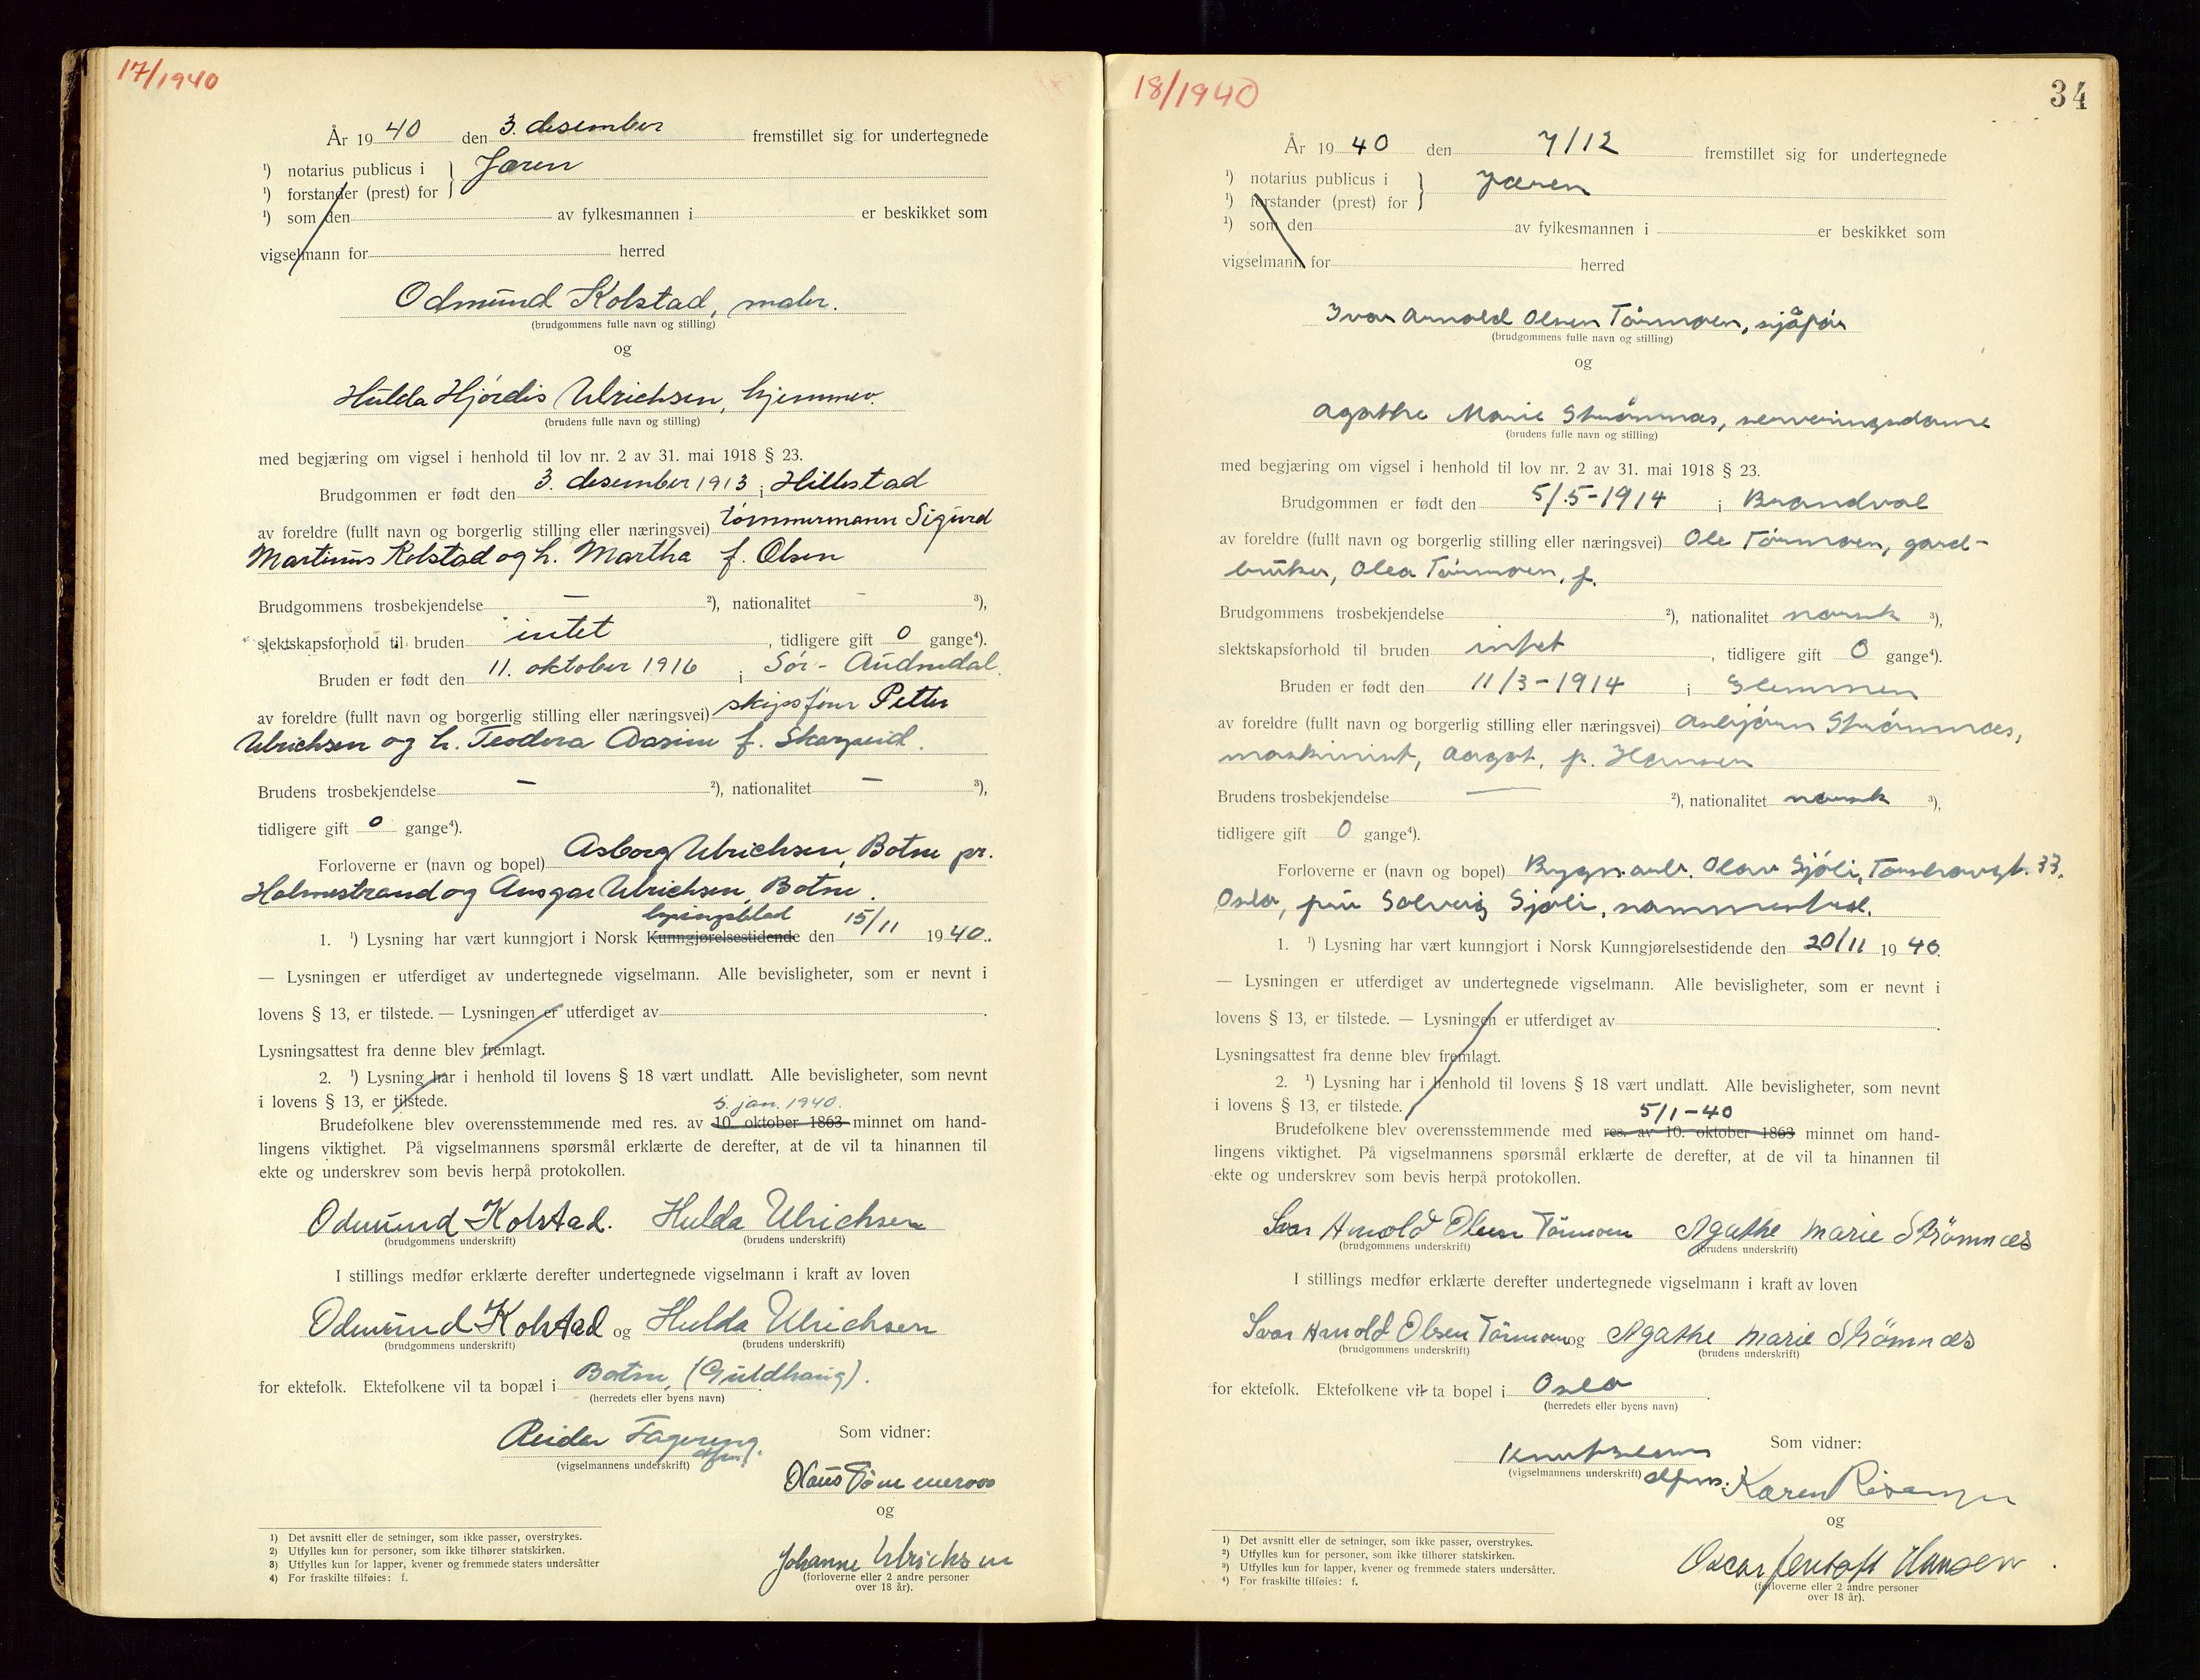 17/1940
År 1940 den 3. desember fremstillet sig for undertegnede
¹) notarius publicus i } Jæren
¹) forstander (prest) for
¹) som den av fylkesmannen i er beskikket som
vigselmann for herred
Odmund Kolstad, maler.
(brudgommens fulle navn og stilling)
og
Hulda Hjördis Ulrichsen, hjemmev.
(brudens fulle navn og stilling)
med begjæring om vigsel i henhold til lov nr. 2 av 31. mai 1918 § 23.
Brudgommen er født den 3. desember 1913 i Hillestad
av foreldre (fullt navn og borgerlig stilling eller næringsvei) tömmermann Sigurd
Martinus Kolstad og h. Martha f. Olsen
Brudgommens trosbekjendelse — ²), nationalitet – ³),
slektskapsforhold til bruden intet, tidligere gift 0 gange⁴).
Bruden er født den 11. oktober 1916 i Sör-Audnedal.
av foreldre (fullt navn og borgerlig stilling eller næringsvei) skipsförer Petter
Ulrichsen og h. Teodora f.
Brudens trosbekjendelse – ²), nationalitet – ³),
tidligere gift 0 gange⁴).
Forloverne er (navn og bopel) Asborg Ulrichsen, Botne pr.
Holmestrand og Ansgar Ulrichsen, Botne.
lysingsblad
1. ¹) Lysning har vært kunngjort i Norsk Kunngjørelsestidende den 15/11 1940.
— Lysningen er utferdiget av undertegnede vigselmann. Alle bevisligheter, som er nevnt i
lovens § 13, er tilstede. — Lysningen er utferdiget av
Lysningsattest fra denne blev fremlagt.
2. ¹) Lysning har i henhold til lovens § 18 vært undlatt. Alle bevisligheter, som nevnt
i lovens § 13, er tilstede. 5. jan. 1940.
Brudefolkene blev overensstemmende med res. av 10. oktober 1863 minnet om hand-
lingens viktighet. På vigselmannens spørsmål erklærte de derefter, at de vil ta hinannen til
ekte og underskrev som bevis herpå protokollen.
Odmund Kolstad. Hulda Ulrichsen
(brudgommens underskrift) (brudens underskrift)
I stillings medfør erklærte derefter undertegnede vigselmann i kraft av loven
Odmund Kolstad og Hulda Ulrichsen
(brudgommens underskrift) (brudens underskrift)
for ektefolk. Ektefolkene vil ta bopæl i Botne, (Guldhaug).
(herredets eller byens navn)
Reidar
(vigselmannens underskrift) dfm.
Som vidner:
og
Johanne Ulrichsen
(forloverne eller 2 andre personer
over 18 år).
1) Det avsnitt eller de setninger, som ikke passer, overstrykes.
2) Utfylles kun for personer, som ikke tilhører statskirken.
3) Utfylles kun for lapper, kvener og fremmede staters undersåtter
4) For fraskilte tilføies: f.
18/1940
34
År 1940 den 7/12 fremstillet sig for undertegnede
¹) notarius publicus i } Jæren
¹) forstander (prest) for
¹) som den av fylkesmannen i er beskikket som
vigselmann for herred
Ivar Arnold Olsen Törmoen, sjåför
(brudgommens fulle navn og stilling)
og
Agathe Marie Strömnæs, serveringsdame
(brudens fulle navn og stilling)
med begjæring om vigsel i henhold til lov nr. 2 av 31. mai 1918 § 23.
Brudgommen er født den 5/5-1914 i Brandval
av foreldre (fullt navn og borgerlig stilling eller næringsvei) Ole Törmoen, gard-
bruker, Olea Törmoen, f.
Brudgommens trosbekjendelse ²), nationalitet norsk ³),
slektskapsforhold til bruden intet, tidligere gift 0 gange⁴).
Bruden er født den 11/3-1914 i Glemmen
av foreldre (fullt navn og borgerlig stilling eller næringsvei) Asbjörn Strömnæs,
maskinist, Aagot, f. Hansen
Brudens trosbekjendelse — ²), nationalitet norsk ³),
tidligere gift 0 gange⁴).
Forloverne er (navn og bopel) Bygn.arb. Olav Sjöli, 33,
Oslo, fru Solveig Sjöli, sammested.
1. ¹) Lysning har vært kunngjort i Norsk Kunngjørelsestidende den 20/11 1940.
— Lysningen er utferdiget av undertegnede vigselmann. Alle bevisligheter, som er nevnt i
lovens § 13, er tilstede. — Lysningen er utferdiget av
Lysningsattest fra denne blev fremlagt.
2. ¹) Lysning har i henhold til lovens § 18 vært undlatt. Alle bevisligheter, som nevnt
i lovens § 13, er tilstede. 5/1-40
Brudefolkene blev overensstemmende med res. av 10. oktober 1863 minnet om hand-
lingens viktighet. På vigselmannens spørsmål erklærte de derefter, at de vil ta hinannen til
ekte og underskrev som bevis herpå protokollen.
Ivar Arnold Olsen Törmoen Agathe Marie Strömnæs
(brudgommens underskrift) (brudens underskrift)
I stillings medfør erklærte derefter undertegnede vigselmann i kraft av loven
Ivar Arnold Olsen Törmoen og Agathe Marie Strömnæs
(brudgommens underskrift) (brudens underskrift)
for ektefolk. Ektefolkene vil ta bopel i Oslo.
(herredets eller byens navn)
(vigselmannens underskrift) dfm.
Som vidner:
Karen
og
Oscar Hansen
(forloverne eller 2 andre personer
over 18 år).
¹) Det avsnitt eller de setninger, som ikke passer, overstrykes.
²) Utfylles kun for personer, som ikke tilhører statskirken.
³) Utfylles kun for lapper, kvener og fremmede staters undersåtter.
⁴) For fraskilte tilføies: f.